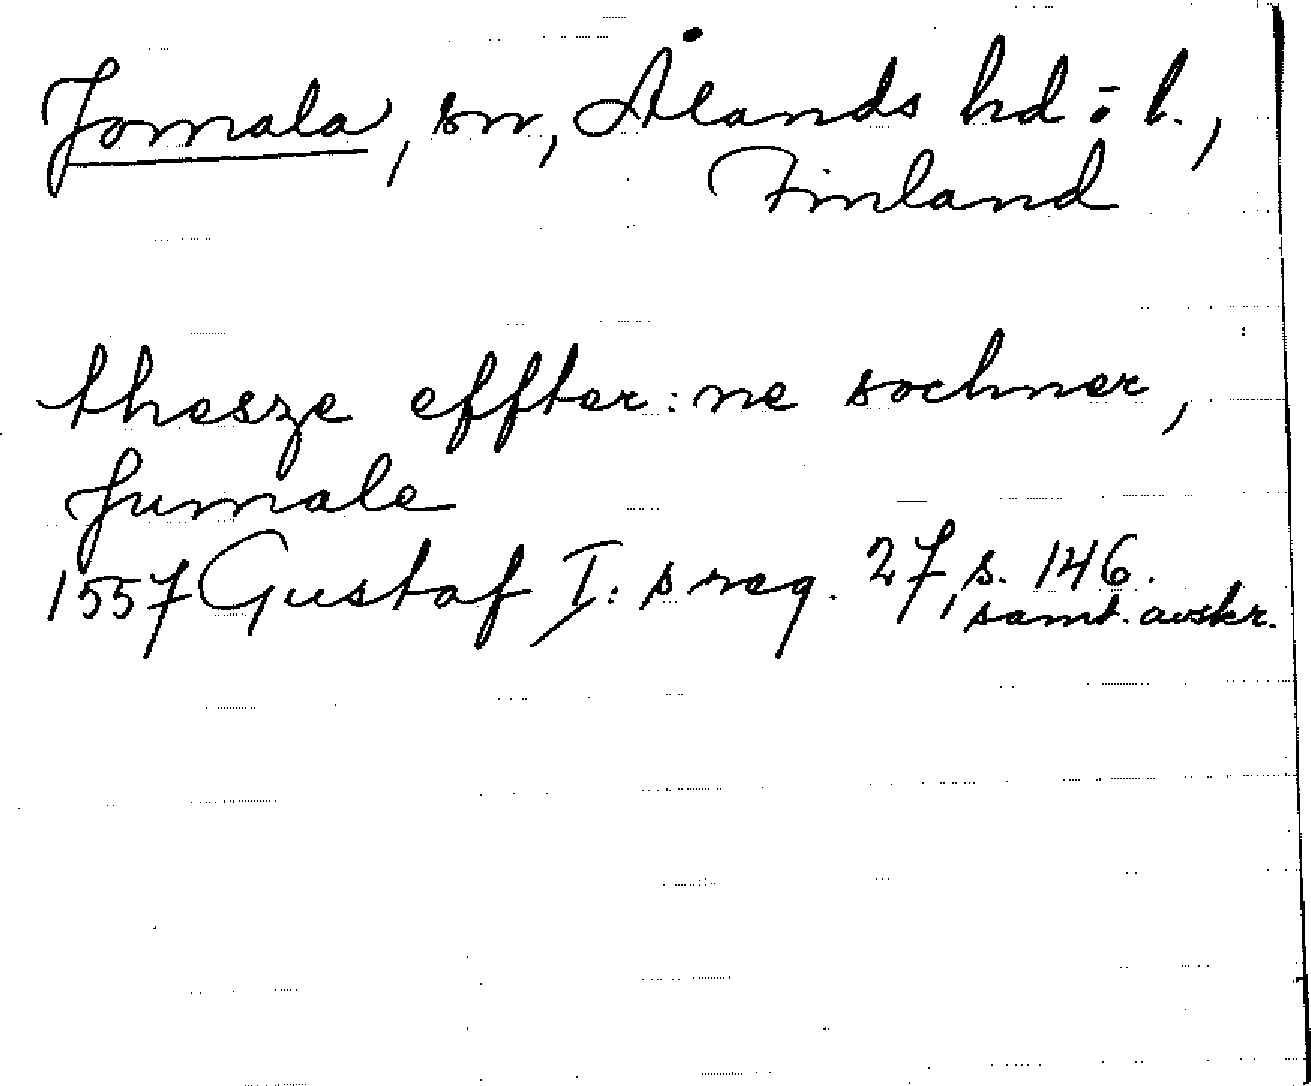 Jomala, sn, Ålands hd o. l.,
Finland
thesze effter:ne sochner,
Jumale
1557 Gustaf I:s reg. 27, s. 146.
samt. avskr.